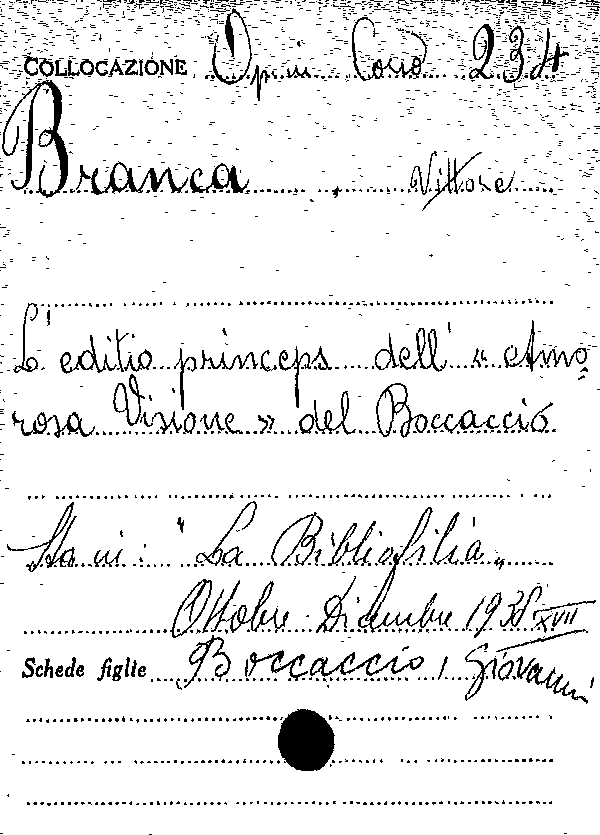 COLLOCAZIONE Opusc. Corsi 23 A
Branca, Vittore
L'editio princeps dell' « Amo=
rosa Visione » del Boccaccio
Sta in: "La Bibliofilia„
Ottobre-Dicembre 1938 XVII
Schede figlie Boccaccio, Giovanni